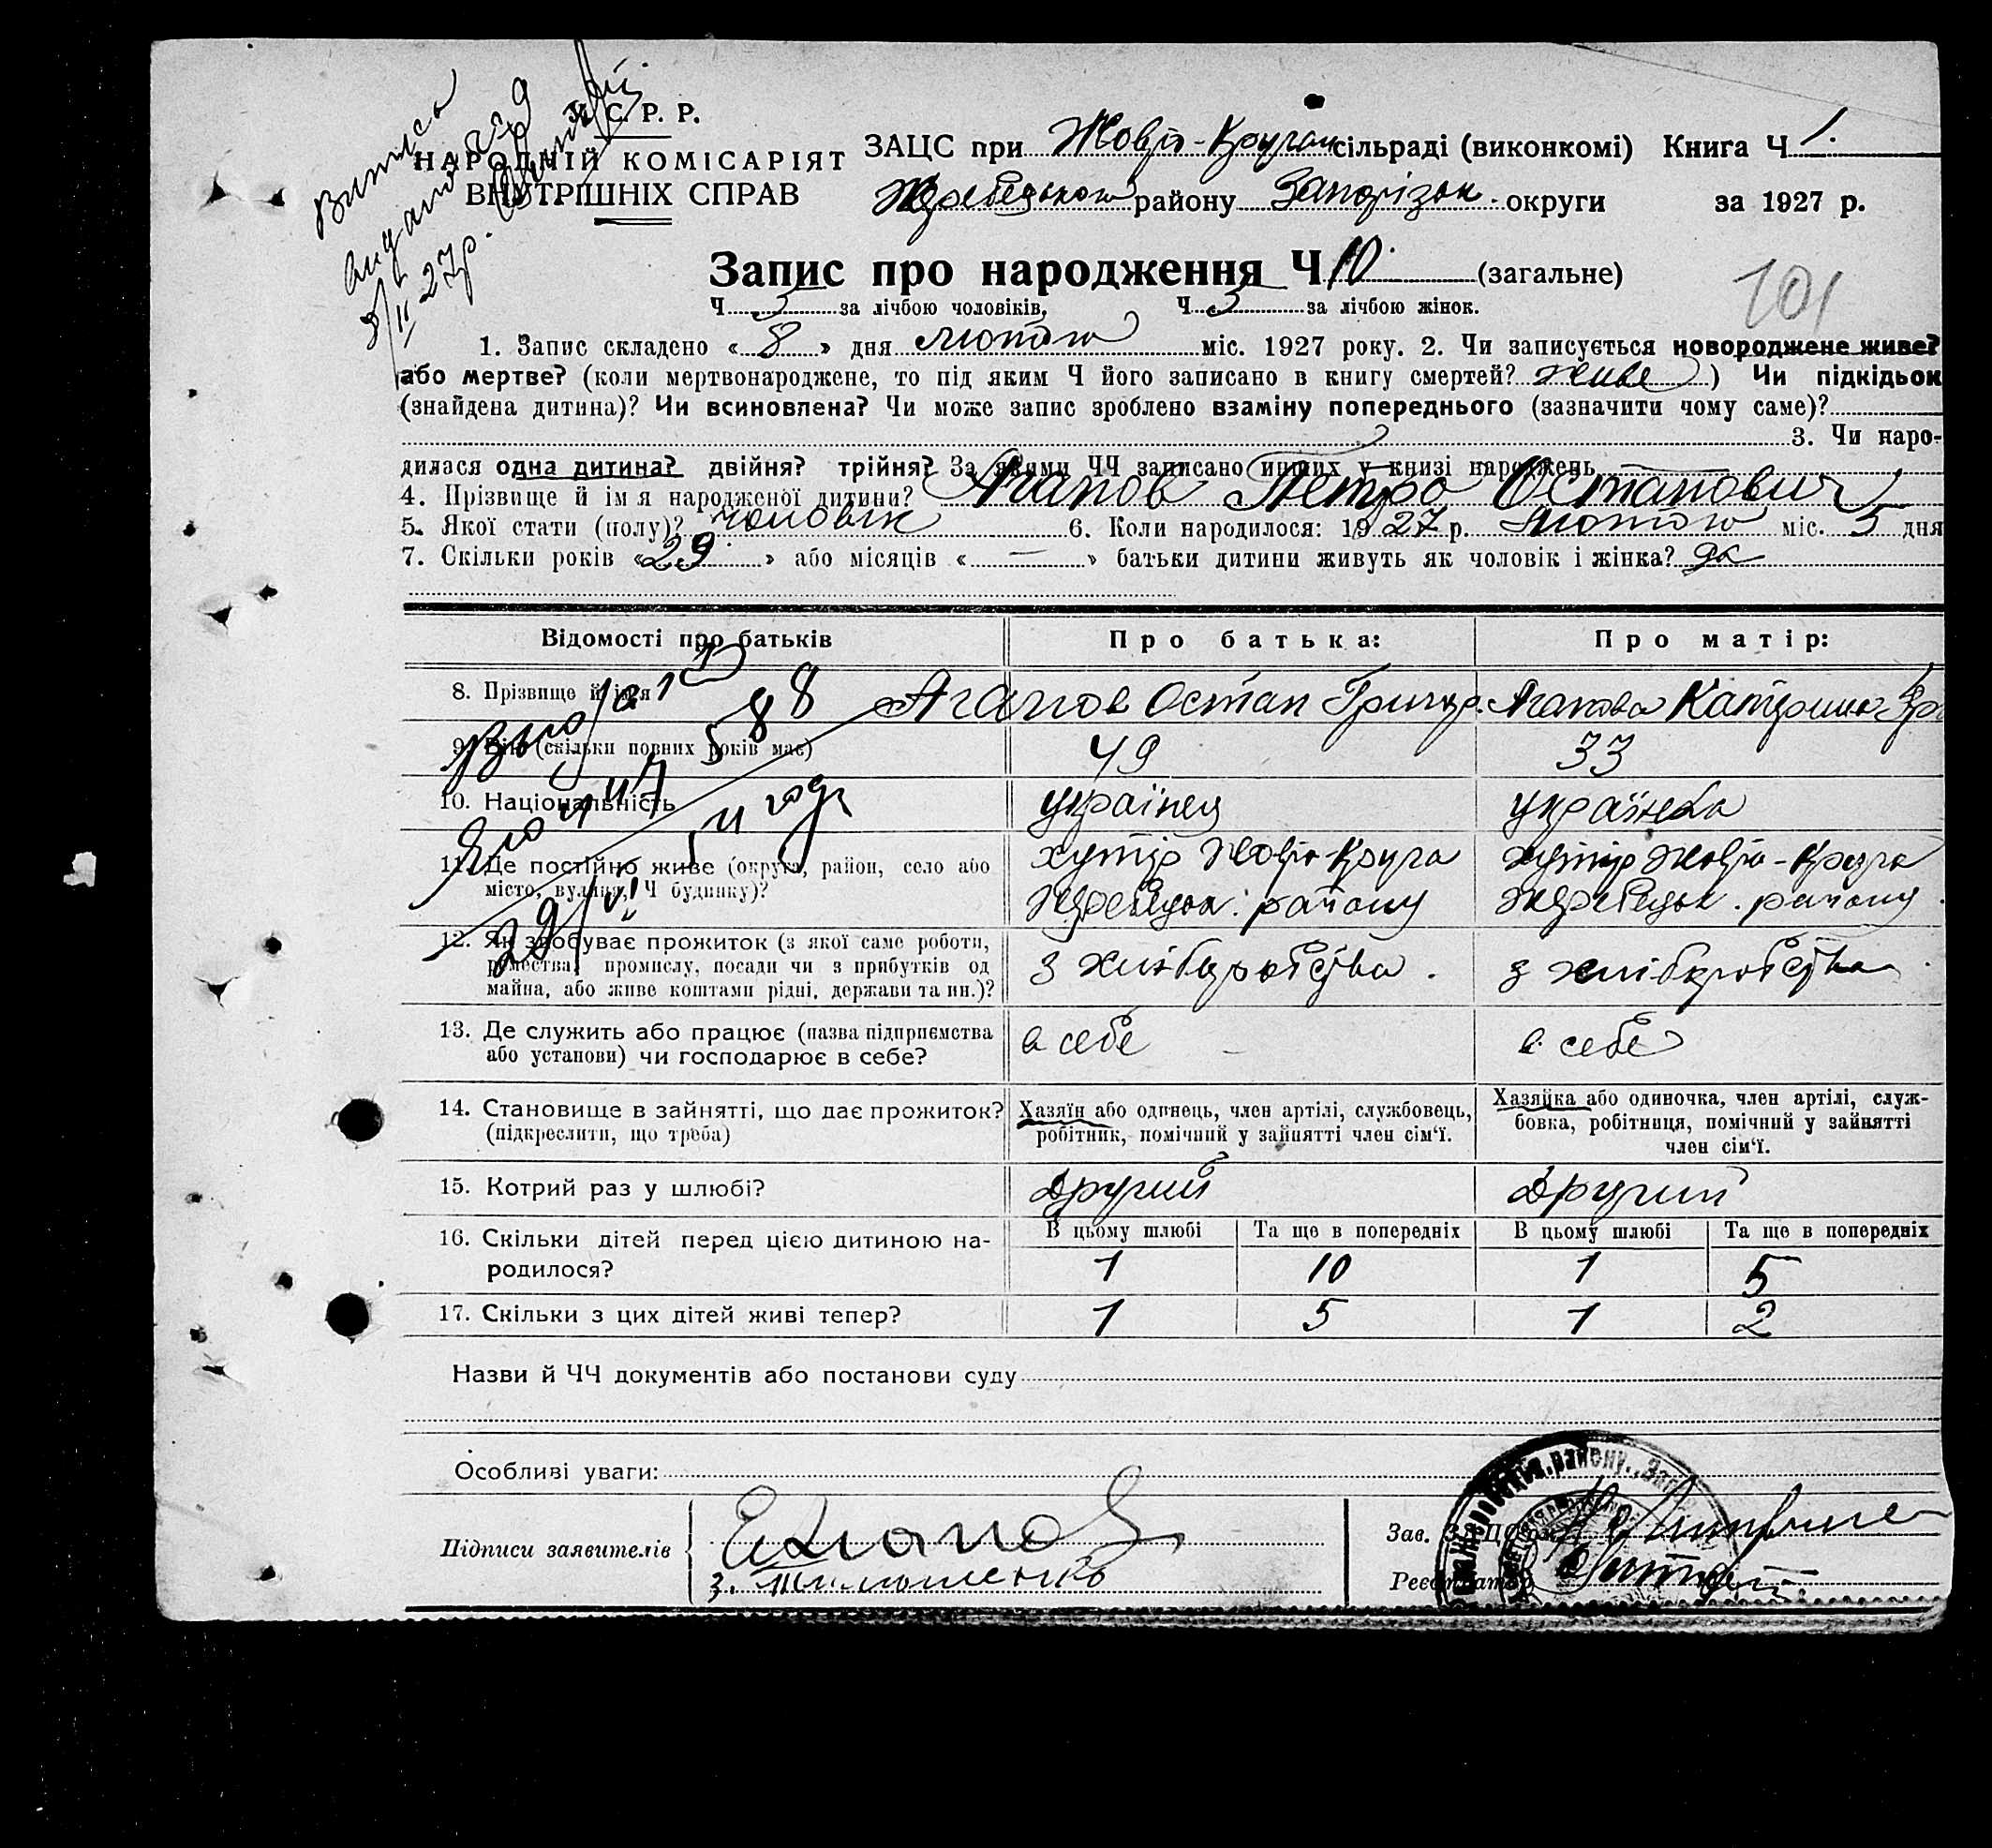 У. С. Р. Р.
НАРОДНІЙ КОМІСАРІЯТ
ВНУТРІШНІХ СПРАВ
Витись
8/II 27р.
ЗАЦС при Жовто-Кругак сільраді (виконкомі) Книга Ч 1.
Жеребецького району Запорізьк. округи за 1927 р.
Запис про народження Ч 10. (загальне)
101
Ч 5 за лічбою чоловіків, Ч 5 за лічбою жінок.
1. Запис складено «8» дня лютого міс. 1927 року. 2. Чи записується новороджене живе?
або мертве? (коли мертвонароджене, то під яким Ч його записано в книгу смертей? живе) Чи підкідьок
(знайдена дитина)? Чи всиновлена? Чи може запис зроблено взаміну попереднього (зазначити чому саме)?
3. Чи наро-
дилася одна дитина? двійня? трійня? За якими ЧЧ записано инших у книзі народжень
4. Прізвище й ім я народженої дитини? Агапов Петро Остапович
5. Якої стати (полу)? чоловік 6. Коли народилося: 1927 р. лютого міс. 5 дня
7. Скільки років «29» або місяців «—» батьки дитини живуть як чоловік і жінка?
Відомості про батьків Про батька: Про матір:
8. Прізвище й імя Агапов Остап Григор. Агапова Катерина Гр
9. Вік (скільки повних років має) 49 33
10. Національність українец українка
11. Де постійно живе (округа, район, село або місто, вулиця, Ч будинку)?
хутір Жовто-Круга Жеребецьк. району
хутір Жовто-Круга Жеребецьк. району
12. Як здобуває прожиток (з якої саме роботи, ремества, промислу, посади чи з прибутків од майна, або живе коштами рідні, держави та ин.)?
з хліборобства. з хліборобства.
13. Де служить або працює (назва підприємства або установи) чи господарює в себе?
в себе в себе
14. Становище в зайнятті, що дає прожиток? (підкреслити, що треба)
Хазяїн або одинець, член артілі, службовець, робітник, помічний у зайнятті член сім'ї.
Хазяйка або одиночка, член артілі, служ-бовка, робітниця, помічний у зайнятті член сім'ї.
15. Котрий раз у шлюбі? другий другий
В цьому шлюбі Та ще в попередніх В цьому шлюбі Та ще в попередніх
16. Скільки дітей перед цією дитиною на-родилося? 1 10 1 5
17. Скільки з цих дітей живі тепер? 1 5 1 2
Назви й ЧЧ документів або постанови суду
Особливі уваги:
Підписи заявителів
з. Тимошенко
Зав. ЗАЦСом
Реєстратор